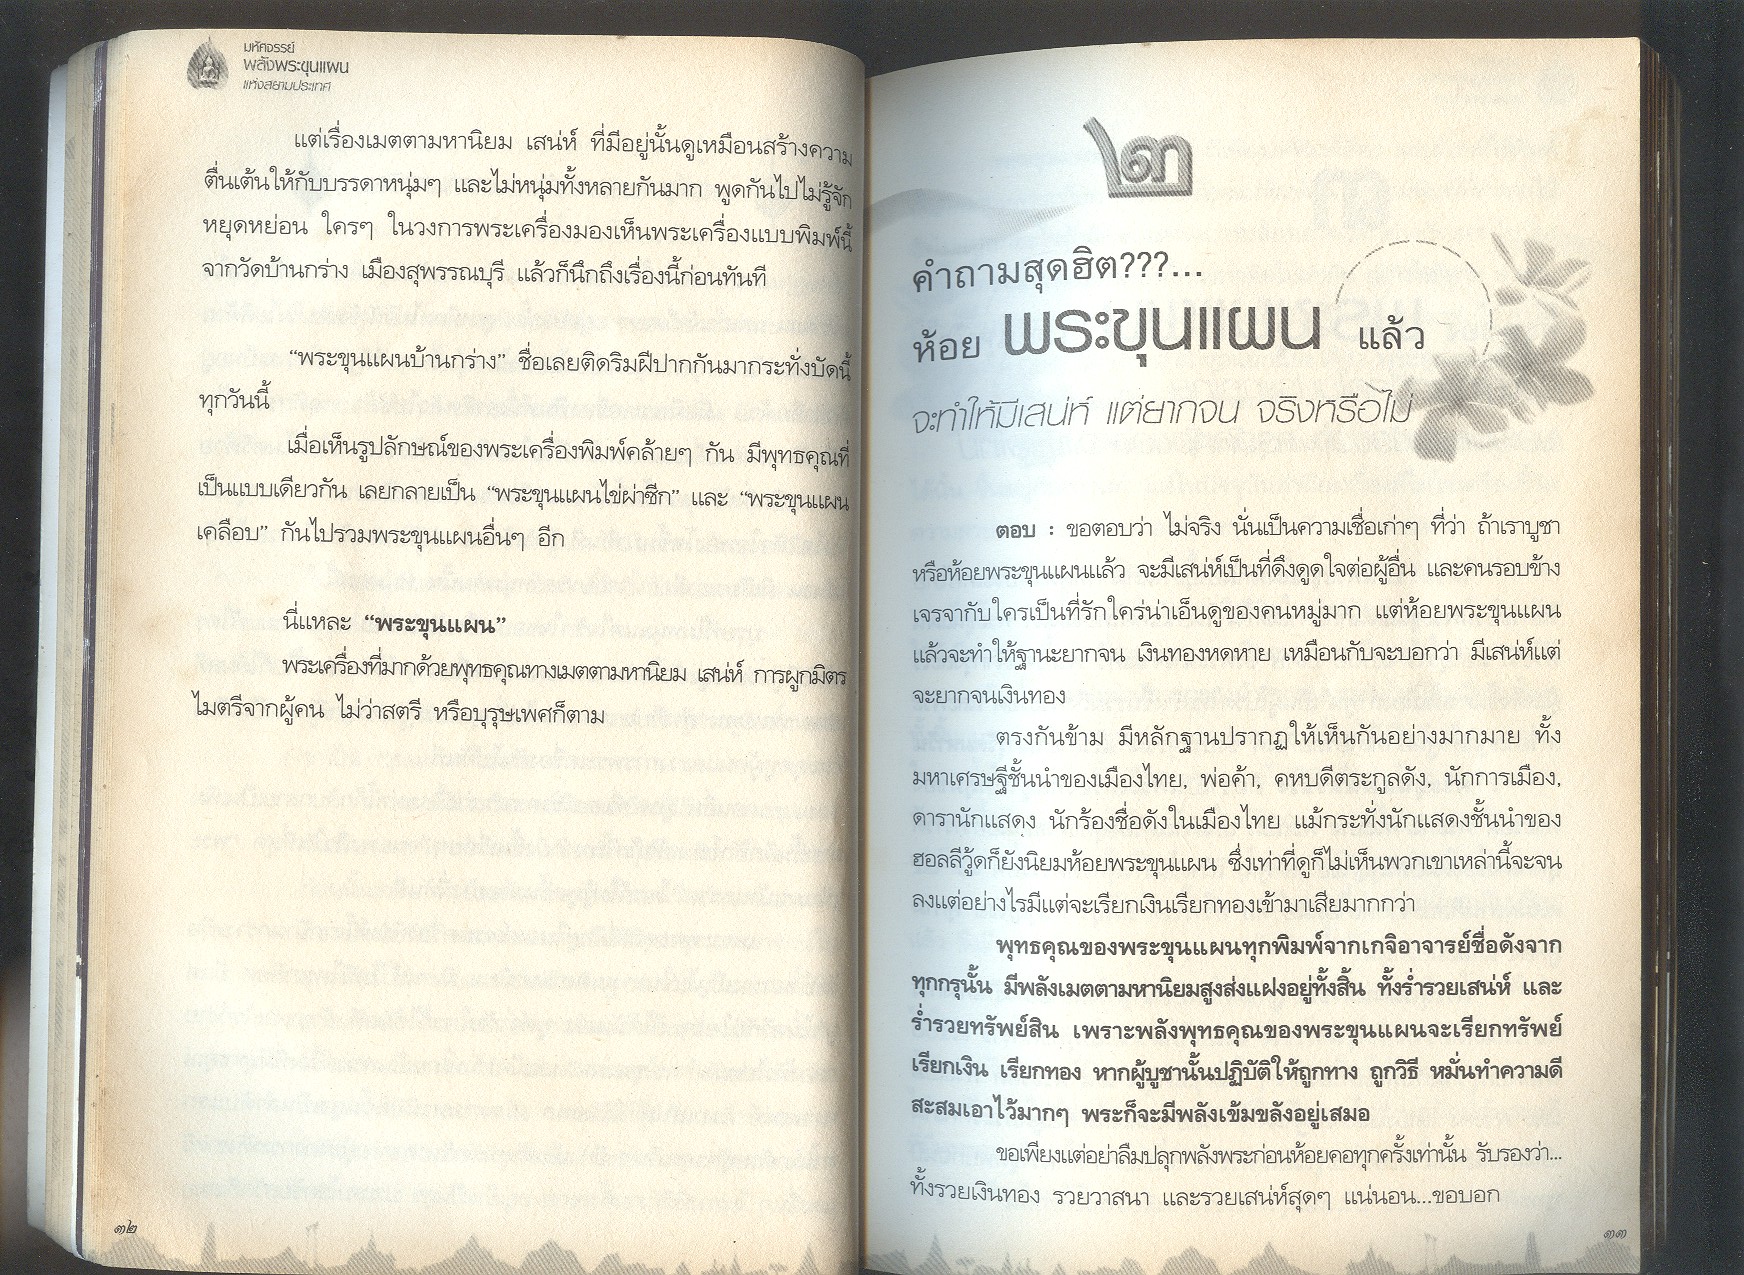 มหัศจรรย์
พลังพระขุนแผน
แห่งสยามประเทศ
แต่เรื่องเมตตามหานิยม เสน่ห์ ที่มีอยู่นั้นดูเหมือนสร้างความ
ตื่นเต้นให้กับบรรดาหนุ่มๆ และไม่หนุ่มทั้งหลายกันมาก พูดกันไปไม่รู้จัก
หยุดหย่อน ใครๆ ในวงการพระเครื่องมองเห็นพระเครื่องแบบพิมพ์นี้
จากวัดบ้านกร่าง เมืองสุพรรณบุรี แล้วก็นึกถึงเรื่องนี้ก่อนทันที
“พระขุนแผนบ้านกร่าง” ชื่อเลยติดริมฝีปากกันมากระทั่งบัดนี้
ทุกวันนี้
เมื่อเห็นรูปลักษณ์ของพระเครื่องพิมพ์คล้ายๆ กัน มีพุทธคุณที่
เป็นแบบเดียวกัน เลยกลายเป็น “พระขุนแผนไข่ผ่าซีก” และ “พระขุนแผน
เคลือบ” กันไปรวมพระขุนแผนอื่นๆ อีก
นี่แหละ “พระขุนแผน”
พระเครื่องที่มากด้วยพุทธคุณทางเมตตามหานิยม เสน่ห์ การผูกมิตร
ไมตรีจากผู้คน ไม่ว่าสตรี หรือบุรุษเพศก็ตาม
๓๒
๒๓
คำถามสุดฮิต???...
ห้อย พระขุนแผน แล้ว
จะทำให้มีเสน่ห์ แต่ยากจน จริงหรือไม่
ตอบ : ขอตอบว่า ไม่จริง นั่นเป็นความเชื่อเก่าๆ ที่ว่า ถ้าเราบูชา
หรือห้อยพระขุนแผนแล้ว จะมีเสน่ห์เป็นที่ดึงดูดใจต่อผู้อื่น และคนรอบข้าง
เจรจากับใครเป็นที่รักใคร่น่าเอ็นดูของคนหมู่มาก แต่ห้อยพระขุนแผน
แล้วจะทำให้ฐานะยากจน เงินทองหดหาย เหมือนกับจะบอกว่า มีเสน่ห์แต่
จะยากจนเงินทอง
ตรงกันข้าม มีหลักฐานปรากฏให้เห็นกันอย่างมากมาย ทั้ง
มหาเศรษฐีชั้นนำของเมืองไทย, พ่อค้า, คหบดีตระกูลดัง, นักการเมือง,
ดารานักแสดง นักร้องชื่อดังในเมืองไทย แม้กระทั่งนักแสดงชั้นนำของ
ฮอลลีวู้ดก็ยังนิยมห้อยพระขุนแผน ซึ่งเท่าที่ดูก็ไม่เห็นพวกเขาเหล่านี้จะจน
ลงแต่อย่างไรมีแต่จะเรียกเงินเรียกทองเข้ามาเสียมากกว่า
พุทธคุณของพระขุนแผนทุกพิมพ์จากเกจิอาจารย์ชื่อดังจาก
ทุกกรุนั้น มีพลังเมตตามหานิยมสูงส่งแฝงอยู่ทั้งสิ้น ทั้งร่ำรวยเสน่ห์ และ
ร่ำรวยทรัพย์สิน เพราะพลังพุทธคุณของพระขุนแผนจะเรียกทรัพย์
เรียกเงิน เรียกทอง หากผู้บูชานั้นปฏิบัติให้ถูกทาง ถูกวิธี หมั่นทำความดี
สะสมเอาไว้มากๆ พระก็จะมีพลังเข้มขลังอยู่เสมอ
ขอเพียงแต่อย่าลืมปลุกพลังพระก่อนห้อยคอทุกครั้งเท่านั้น รับรองว่า...
ทั้งรวยเงินทอง รวยวาสนา และรวยเสน่ห์สุดๆ แน่นอน...ขอบอก
๓๓